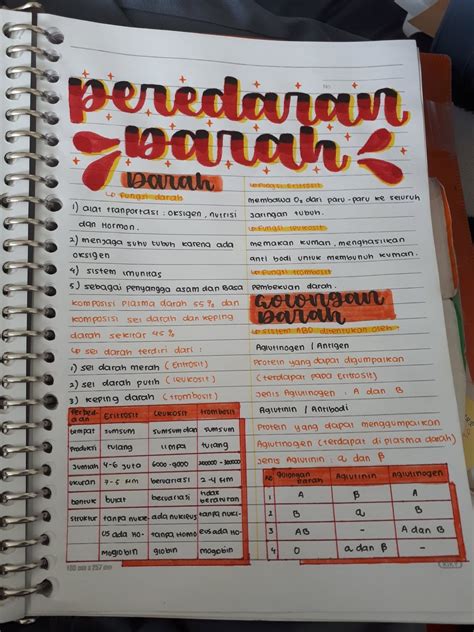 No.
Peredaran
Darah
Darah
↳ Fungsi darah
1) alat tranportasi : oksigen, nutrisi
dan Hormon.
2) menjaga suhu tubuh karena ada
oksigen
4) sistem imunitas
5) sebagai penyangga asam dan Basa
komposisi plasma darah 55 % dan
komposisi sel darah dan keping
darah sekitar 45 %
↳ sel darah terdiri dari :
1) sel darah merah (eritrosit)
2) sel darah putih (leukosit)
3) keping darah (trombosit)
Perbed-aan | Eritrosit | Leukosit | Trombosit
tempat | sumsum | sumsum dan | sumsum
Produksi | tulang | limpa | tulang
Jumlah | 4-6 juta | 6000-9000 | 200000-300000
ukuran | 7-8 μm | bervariasi | 2-4 μm
bentuk | bulat | bervariasi | tidak beraturan
struktur | tanpa nukle- | ada nukleus | tanpa nukl-
us ada Ho- | tanpa Homo | eus ada Ho-
mogobin | globin | mogobin
↳ Fungsi eritrosit
membawa O₂ dari paru-paru ke seluruh
Jaringan tubuh.
↳ Fungsi leukosit
memakan kuman, menghasilkan
anti bodi untuk membunuh kuman.
↳ Fungsi trombosit
pembekuan darah.
Golongan
Darah
↳ sistem ABO ditentukan oleh
Aglutinogen / Antigen
Protein yang dapat digumpalkan
(terdapat pada Eritrosit)
Jenis Aglutinogen : A dan B
Aglutinin / Antibodi
Protein yang dapat menggumpalkan
Aglutinogen (terdapat di plasma darah)
Jenis Aglutinin : α dan β
No | Golongan Darah | Aglutinin | Aglutinogen
1 | A | β | A
2 | B | α | B
3 | AB | - | A dan B
4 | O | α dan β | -